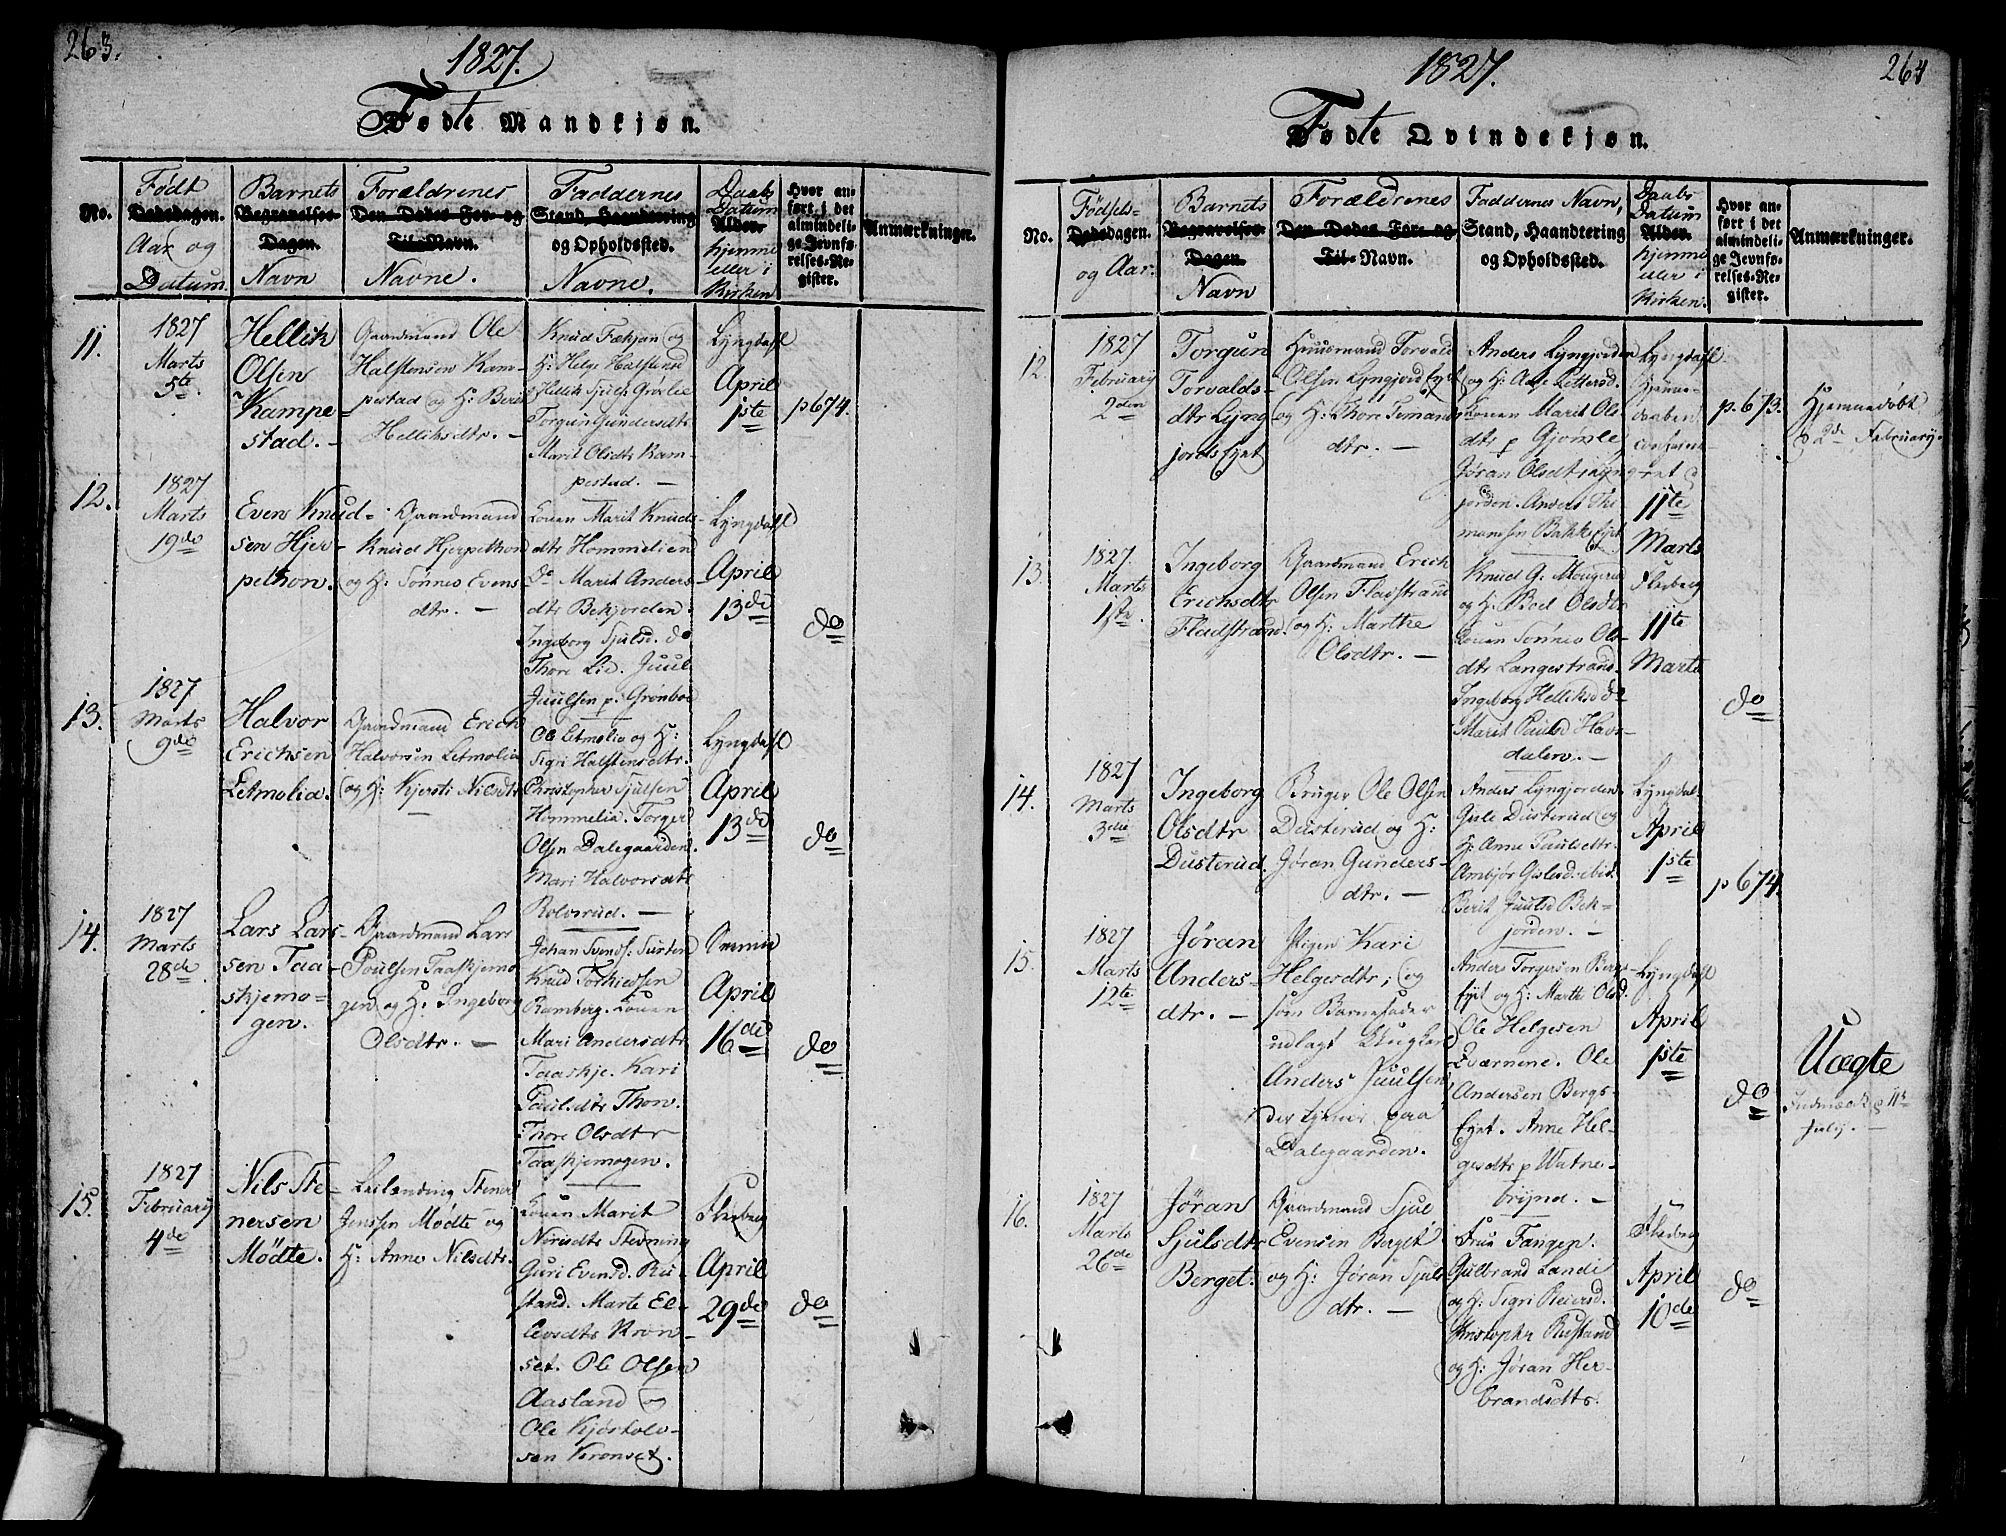 263.
1827.
Fødte Mandkjøn.
No.
Født
Dødsdagen.
Aar og
Datum.
Barnets
Begravelses-
Dagen.
Navn
Forældrenes
Den Dødes For- og
Til-Navn.
Navne.
Faddernes
Stand, Haandtering
og Opholdssted.
Navne.
Daabs
Datum
Alder.
Hjemme
eller i
Kirken
Hver an-
ført i det
almindeli-
ge Jevnfø-
relses-Re-
gister.
Anmærkninger.
11.
1827
Marts
5te
Hellik
Olsen
Kampe-
stad.-
Gaardmand Ole
Halstensen Kam-
pestad og H: Berit
Helliksdtr. -
Knud Fækjan og
H: Helge Halstensd
Hellik Sjuls: Grøslie
Torgun Gundersdtr
Marit Olsdtr Kam-
pestad. -
Lyngdahl
April
1ste
p674.
12.
1827
Marts
19de
Even Knud-
sen Hjer-
pethon.
Gaardmand
Knud Hjerpethon
og H: Tønnes Evens
dtr. -
Louen Marit Knuds-
dtr Hommelien
Do Marit Anders-
dtr Bekjorden.
Ingeborg Sjulsd. do
Thore Lie. Juul
Juulsen p: Grønboe
Lyngdahl
April
13de
do
13.
1827
Marts
9de
Halvor
Erichsen
Letmolia.
Gaardmand Erich
Halvorsen Letmolia
og H: Kjersti Nilsdtr
Ole Letmolia og H:
Sigri Halstensdtr.
Christopher Sjulsen
Hommelia. Torger
Olsen Dalegaarden.
Mari Halvorsdtr
Rolvsrud. -
Lyngdahl
April
13de
do
14.
1827
Marts
28de
Lars Lars-
sen Taa-
skjemo-
gen.
Gaardmand Lars
Poulsen Taaskjemo
gen og H: Ingeborg
Olsdtr. -
Johan Svends: Turten
Knud Torkildsen
Ramberg. Louen
Mari Andersdtr
Taaskje. Kari
Paulsdtr Thon.
Thore Olsdtr
Taaskjemogen.
April
16de
do
15.
1827
February
4de
Nils Ste-
nersen
Mødte.
Leilending Stener
Jenssen Mødte og
H: Anne Nilsdtr.
Louen Marit
Nerisdtr Stevning
Guri Evensd. Ru-
stand. Marte El-
levsdtr Kron-
set. Ole Olsen
Aasland og
Ole Kjøstolv-
sen Kronset.
Flesberg
April
29de
do
264
1827.
Fødte Qvindekjøn.
No.
Fødsels-
Dødsdagen.
og Aar.
Barnets
Begravelses-
Dagen.
Navn
Forældrenes
Den Dødes For- og
Til-Navn.
Faddernes Navn,
Stand, Haandtering
og Opholdssted.
Daabs
Datum
Alder.
Hjemme
eller i
Kirken.
Hver an-
ført i det
almindeli-
ge Jevnfø-
relses-Re-
gister.
Anmærkninger.
12.
1827
February
2den
Torgun
Torvalds-
dtr Lyng
jordsejet
Huusmand Torvald
Olsen Lyngjordsejet
og H: Thore Simands
dtr. -
Anders Lyngjorden
og H: Aase Pettersd.
Louen Marit Ols
dtr p Gjømle
Jøran Olsdtr Lyng
jorden. Anders Thi
mansen Bakkeejet
Lyngdahl
Hjemme-
daaben
confirme-
ret d
11te
Marts
p.673.
Hjemmedøbt
d 2de February.
13.
1827.
Marts
1ste
Ingeborg
Erichsdtr
Fladstrand.
Gaardmand Erich
Olsen Fladstrand
og H: Marthe
Olsdtr. -
Knud G: Mogerud
og H: Boel Olsdtr
Louen Tønnes Ols-
dtr Langestrand.
Ingeborg Helliksd do
Marit Paulsd Havs-
dalen. -
Flesberg
11te
Marts
do
14.
1827
Marts
3die
Ingeborg
Olsdtr
Dusterud.
Bruger Ole Olsen
Dusterud og H:
Jøran Gunders-
dtr. -
Anders Lyngjorden
Gule Dusterud og
H: Anne Paulsdtr.
Ambjør Gulsd: ibid.
Berit Juulsd Bek-
jorden. -
Lyngdal
April
1ste
p674.
15.
1827
Marts
12te
Jøran
Anders-
dtr. -
Pigen Kari
Helgesdtr; og
som Barnefader
udlagt Ungkarl
Anders Juulsen
der tjener paa
Dalegaarden.
Anders Torgersen Bergs-
Ejet og H: Marthe Olsd.
Ole Helgesen
Qværnene. Ole
Andersen Bergs-
Ejet. Anne Hel-
gesdtr p Watne-
brynd. -
Lyngdahl
April
1ste
do
Uægte
Indmældt d 11te
July. -
16.
1827
Marts
26de
Jøran
Sjulsdtr
Berget.
Gaardmand Sjul
Evensen Berget
og H: Jøran Sjuls
dtr. -
Frue Fangen.
Gulbrand Lande
og H: Sigri Reiersd.
Kristopher Rustand
og H: Jøran Her-
brandsdtr.
Flesberg
April
10de
do